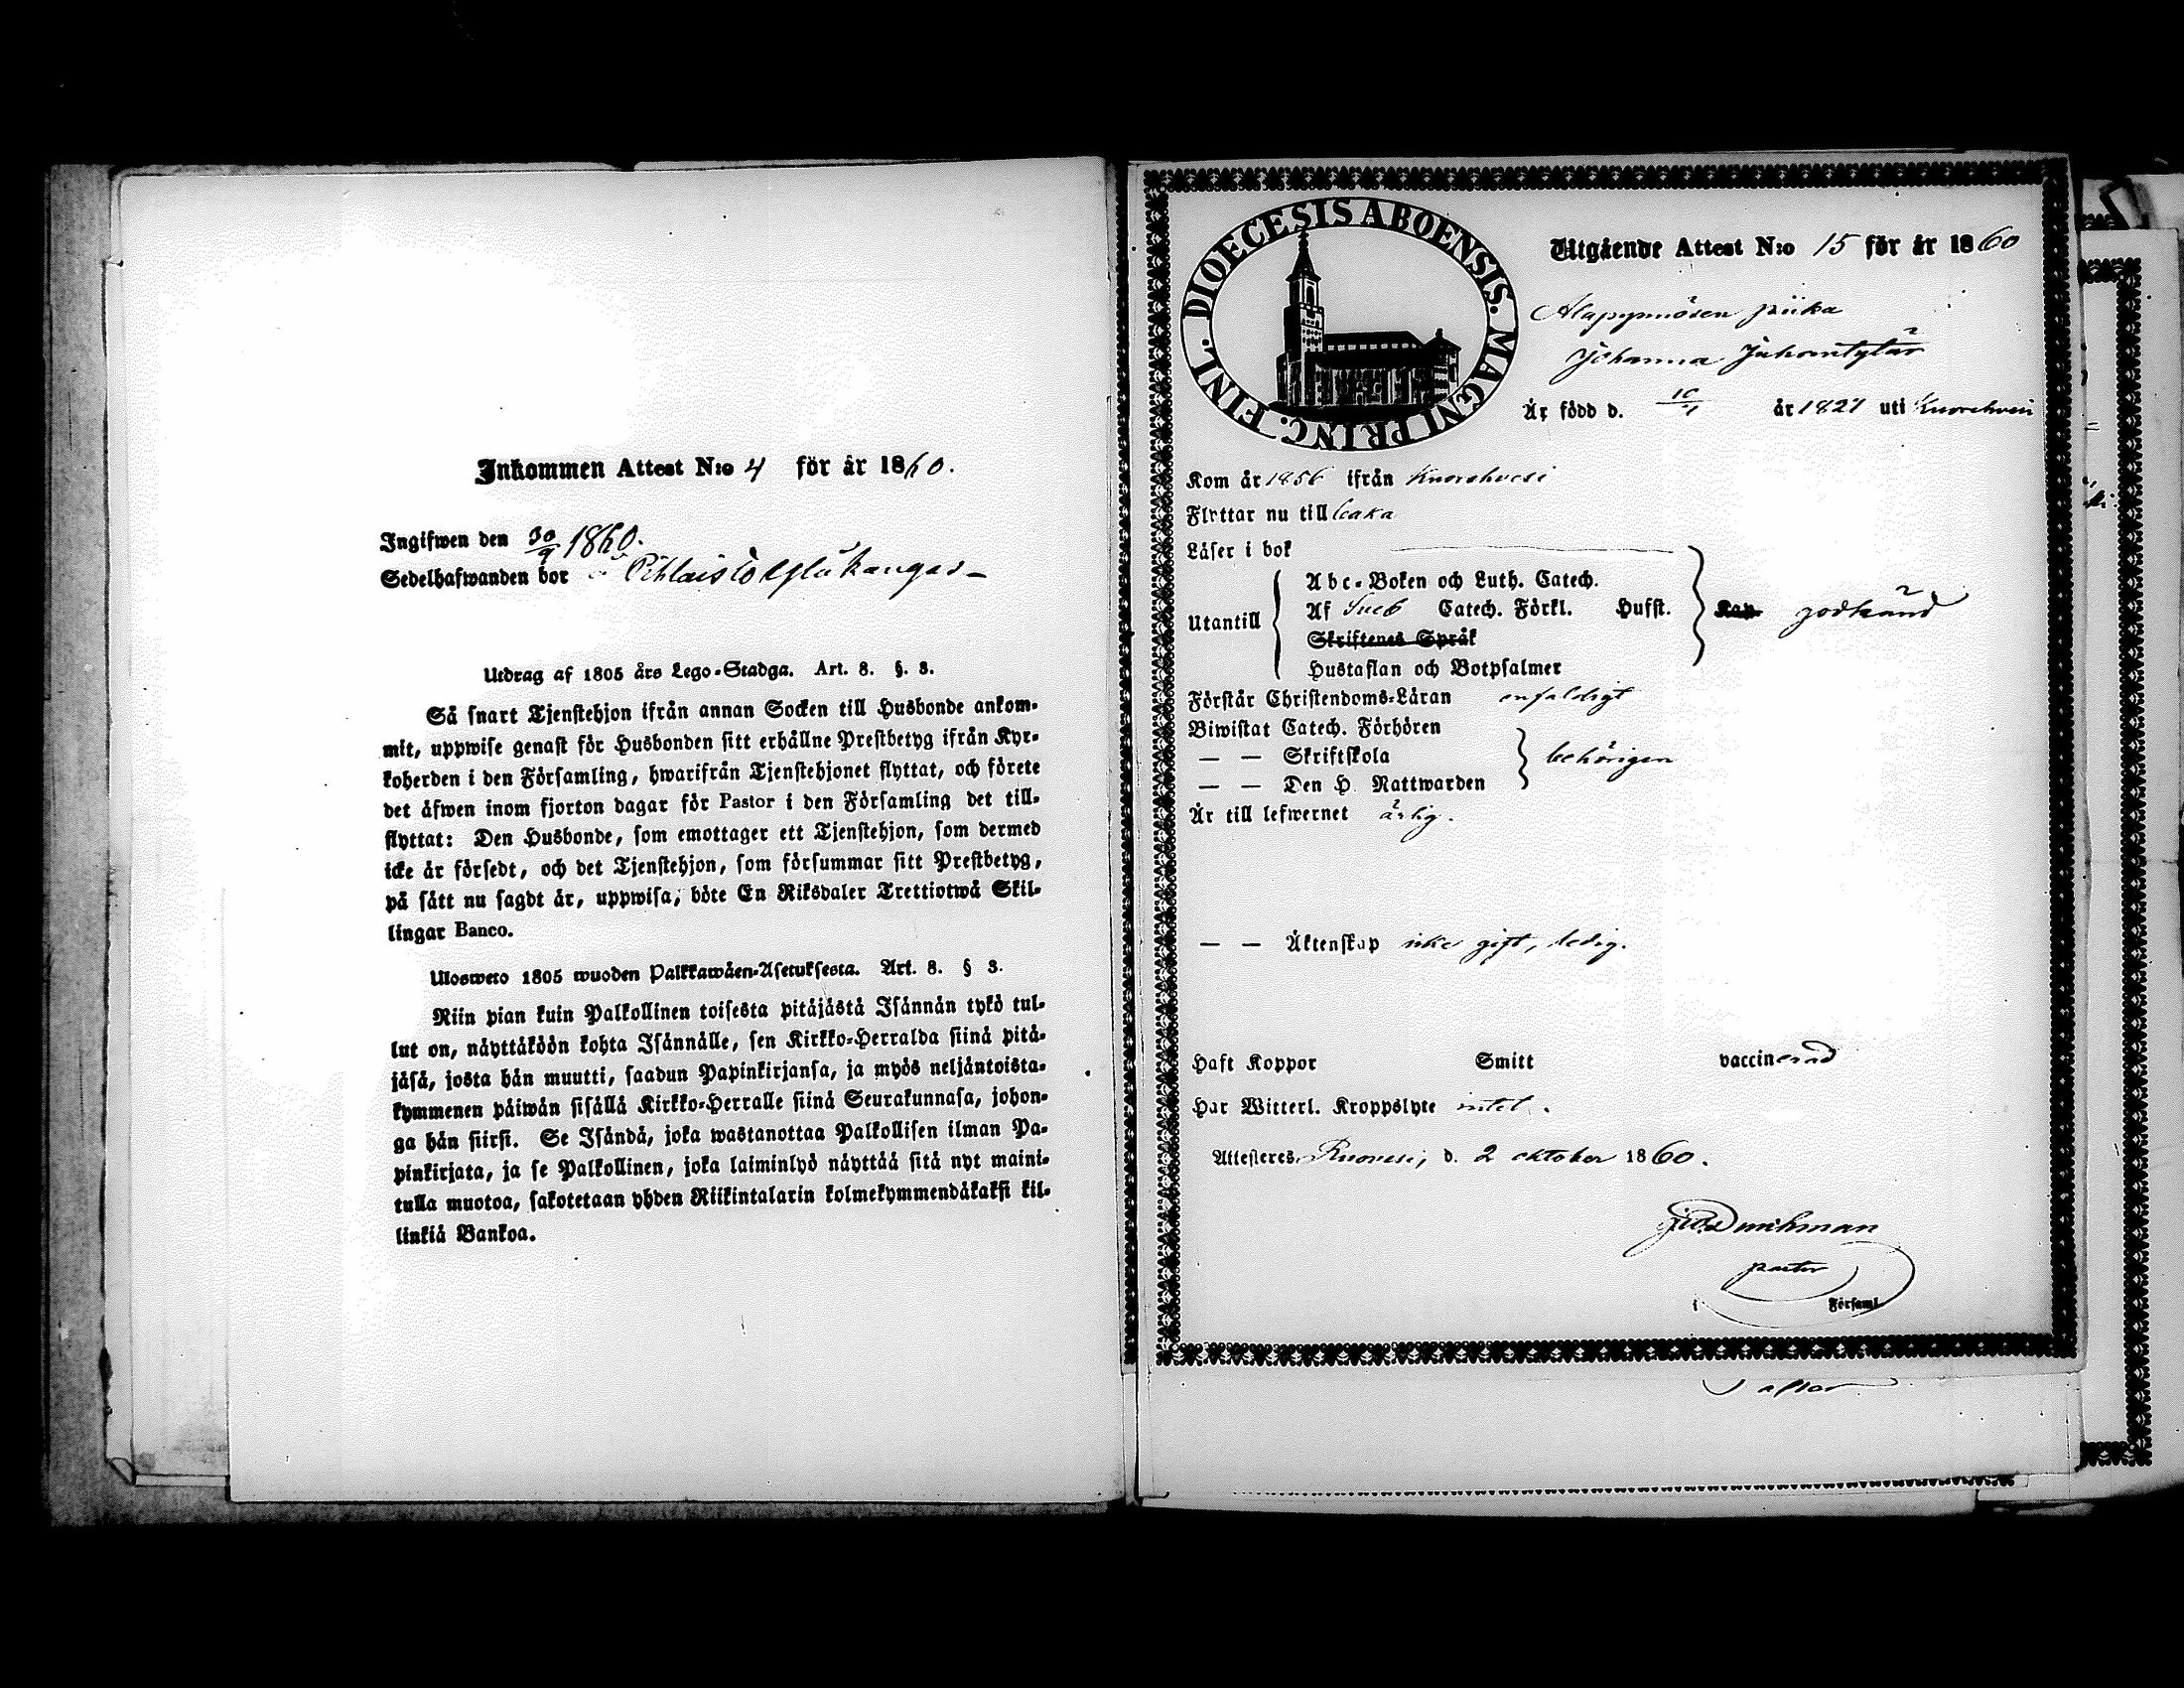 Inkommen Attest N:o 4 för år 1860.
Ingifwen den 30/9 1860.
Sedelhafwanden bor
Utdrag af 1805 års Lego-Stadga. Art. 8. §. 3.
Så snart Tjenstehjon ifrån annan Socken till Husbonde ankom-
mit, uppwise genast för Husbonden sitt erhållne Prestbetyg ifrån Kyr-
koherden i den Församling, hwarifrån Tjenstehjonet flyttat, och förete
det äfwen inom fjorton dagar för Pastor i den Församling det till-
flyttat: Den Husbonde, som emottager ett Tjenstehjon, som dermed
icke är försedt, och det Tjenstehjon, som försummar sitt Prestbetyg,
på sätt nu sagdt är, uppwisa, böte En Riksdaler Trettiotwå Skil-
lingar Banco.
Ulosweto 1805 wuoden Palkkawäen-Asetuksesta. Art. 8. § 3.
Niin pian kuin Palkollinen toisesta pitäjästä Isännän tykö tul-
lut on, näyttäköön kohta Isännälle, sen Kirkko-Herralda siinä pitä-
jäsä, josta hän muutti, saadun Papinkirjansa, ja myös neljäntoista-
kymmenen päiwän sisällä Kirkko-Herralle siinä Seurakunnasa, johon-
ga hän siirsi. Se Isändä, joka wastanottaa Palkollisen ilman Pa-
pinkirjata, ja se Palkollinen, joka laiminlyö näyttää sitä nyt maini-
tulla muotoa, sakotetaan yhden Riikintalarin kolmekymmendäkaksi kil-
linkiä Bankoa.
DIOECESIS ABOENSIS. MAGNI PRINC. FINL.
Utgående Attest N:o 15 för år 1860
piika
Johanna Juhontytär
Är född d. 10/1 år 1821 uti Kuorehvesi
Kom år 1856 ifrån Kuorehvesi
Flyttar nu till
Läser i bok
Abc-Boken och Luth. Catech.
Utantill Af Sveb Catech. Förkl. Hufst. Kap. godkänd
Skriftenes Språk
Hustaflan och Botpsalmer
Förstår Christendoms-Läran enfaldigt
Biwistat Catech. Förhören
— — Skriftskola behörigen
— — Den H. Nattwarden
Är till lefwernet ärlig.
— — Äktenskap icke gift, ledig.
Haft Koppor Smitt vaccinerad
Har Witterl. Kroppslyte intet.
Attesteras Ruovesi, d. 2 oktober 1860.
pastor
i Församl.